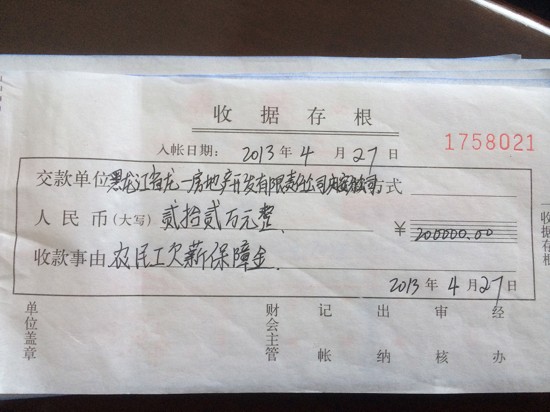 收据存根
入帐日期: 2013年4月27日
1758021
交款单位黑龙江省龙一房地产开发有限责任公司 方式
人民币(大写) 贰拾贰万元整. ¥ 200000.00
收款事由 农民工欠薪保障金.
2013年4月27日
收据存根
单位盖章 财会主管 记帐 出纳 审核 经办